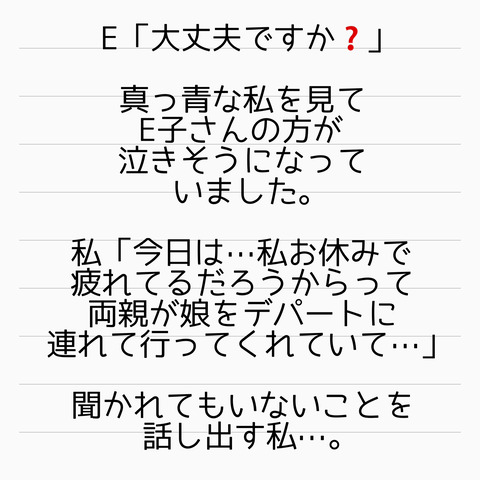 E「大丈夫ですか❓」
真っ青な私を見て
E子さんの方が
泣きそうになって
いました。
私「今日は…私お休みで
疲れてるだろうからって
両親が娘をデパートに
連れて行ってくれていて…」
聞かれてもいないことを
話し出す私…。